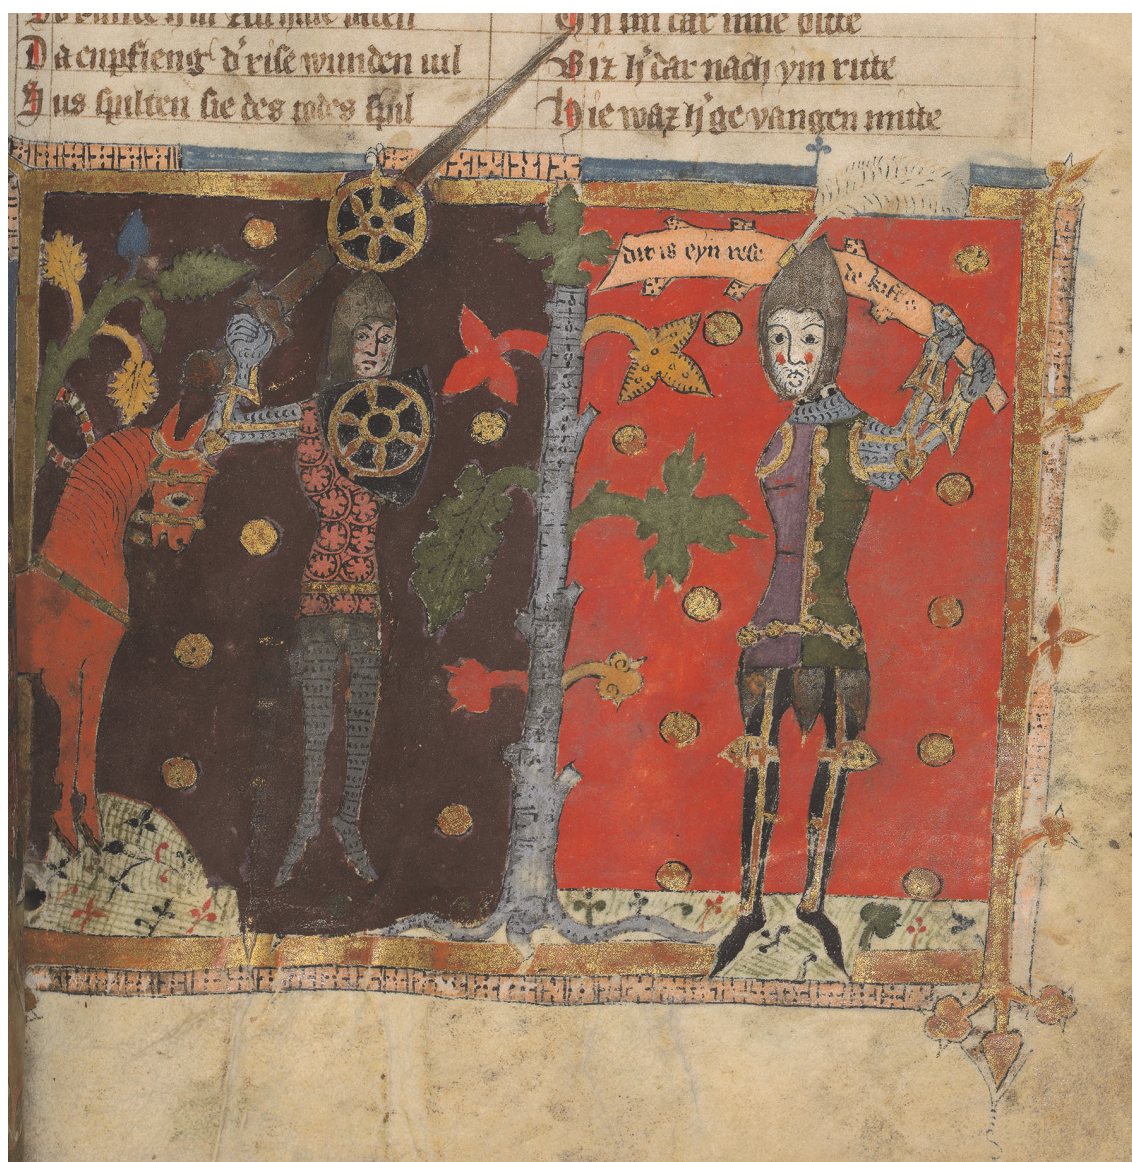 Da enpfieng d'rise wunden uil
Sus spilten sie des todes spil
Biz h' dar nach ym ritte
Hie waz h' ge vangen mitte
dit is eyn rese